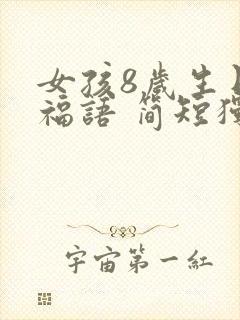 女孩8歲生
福語 簡短
宇宙第一紅